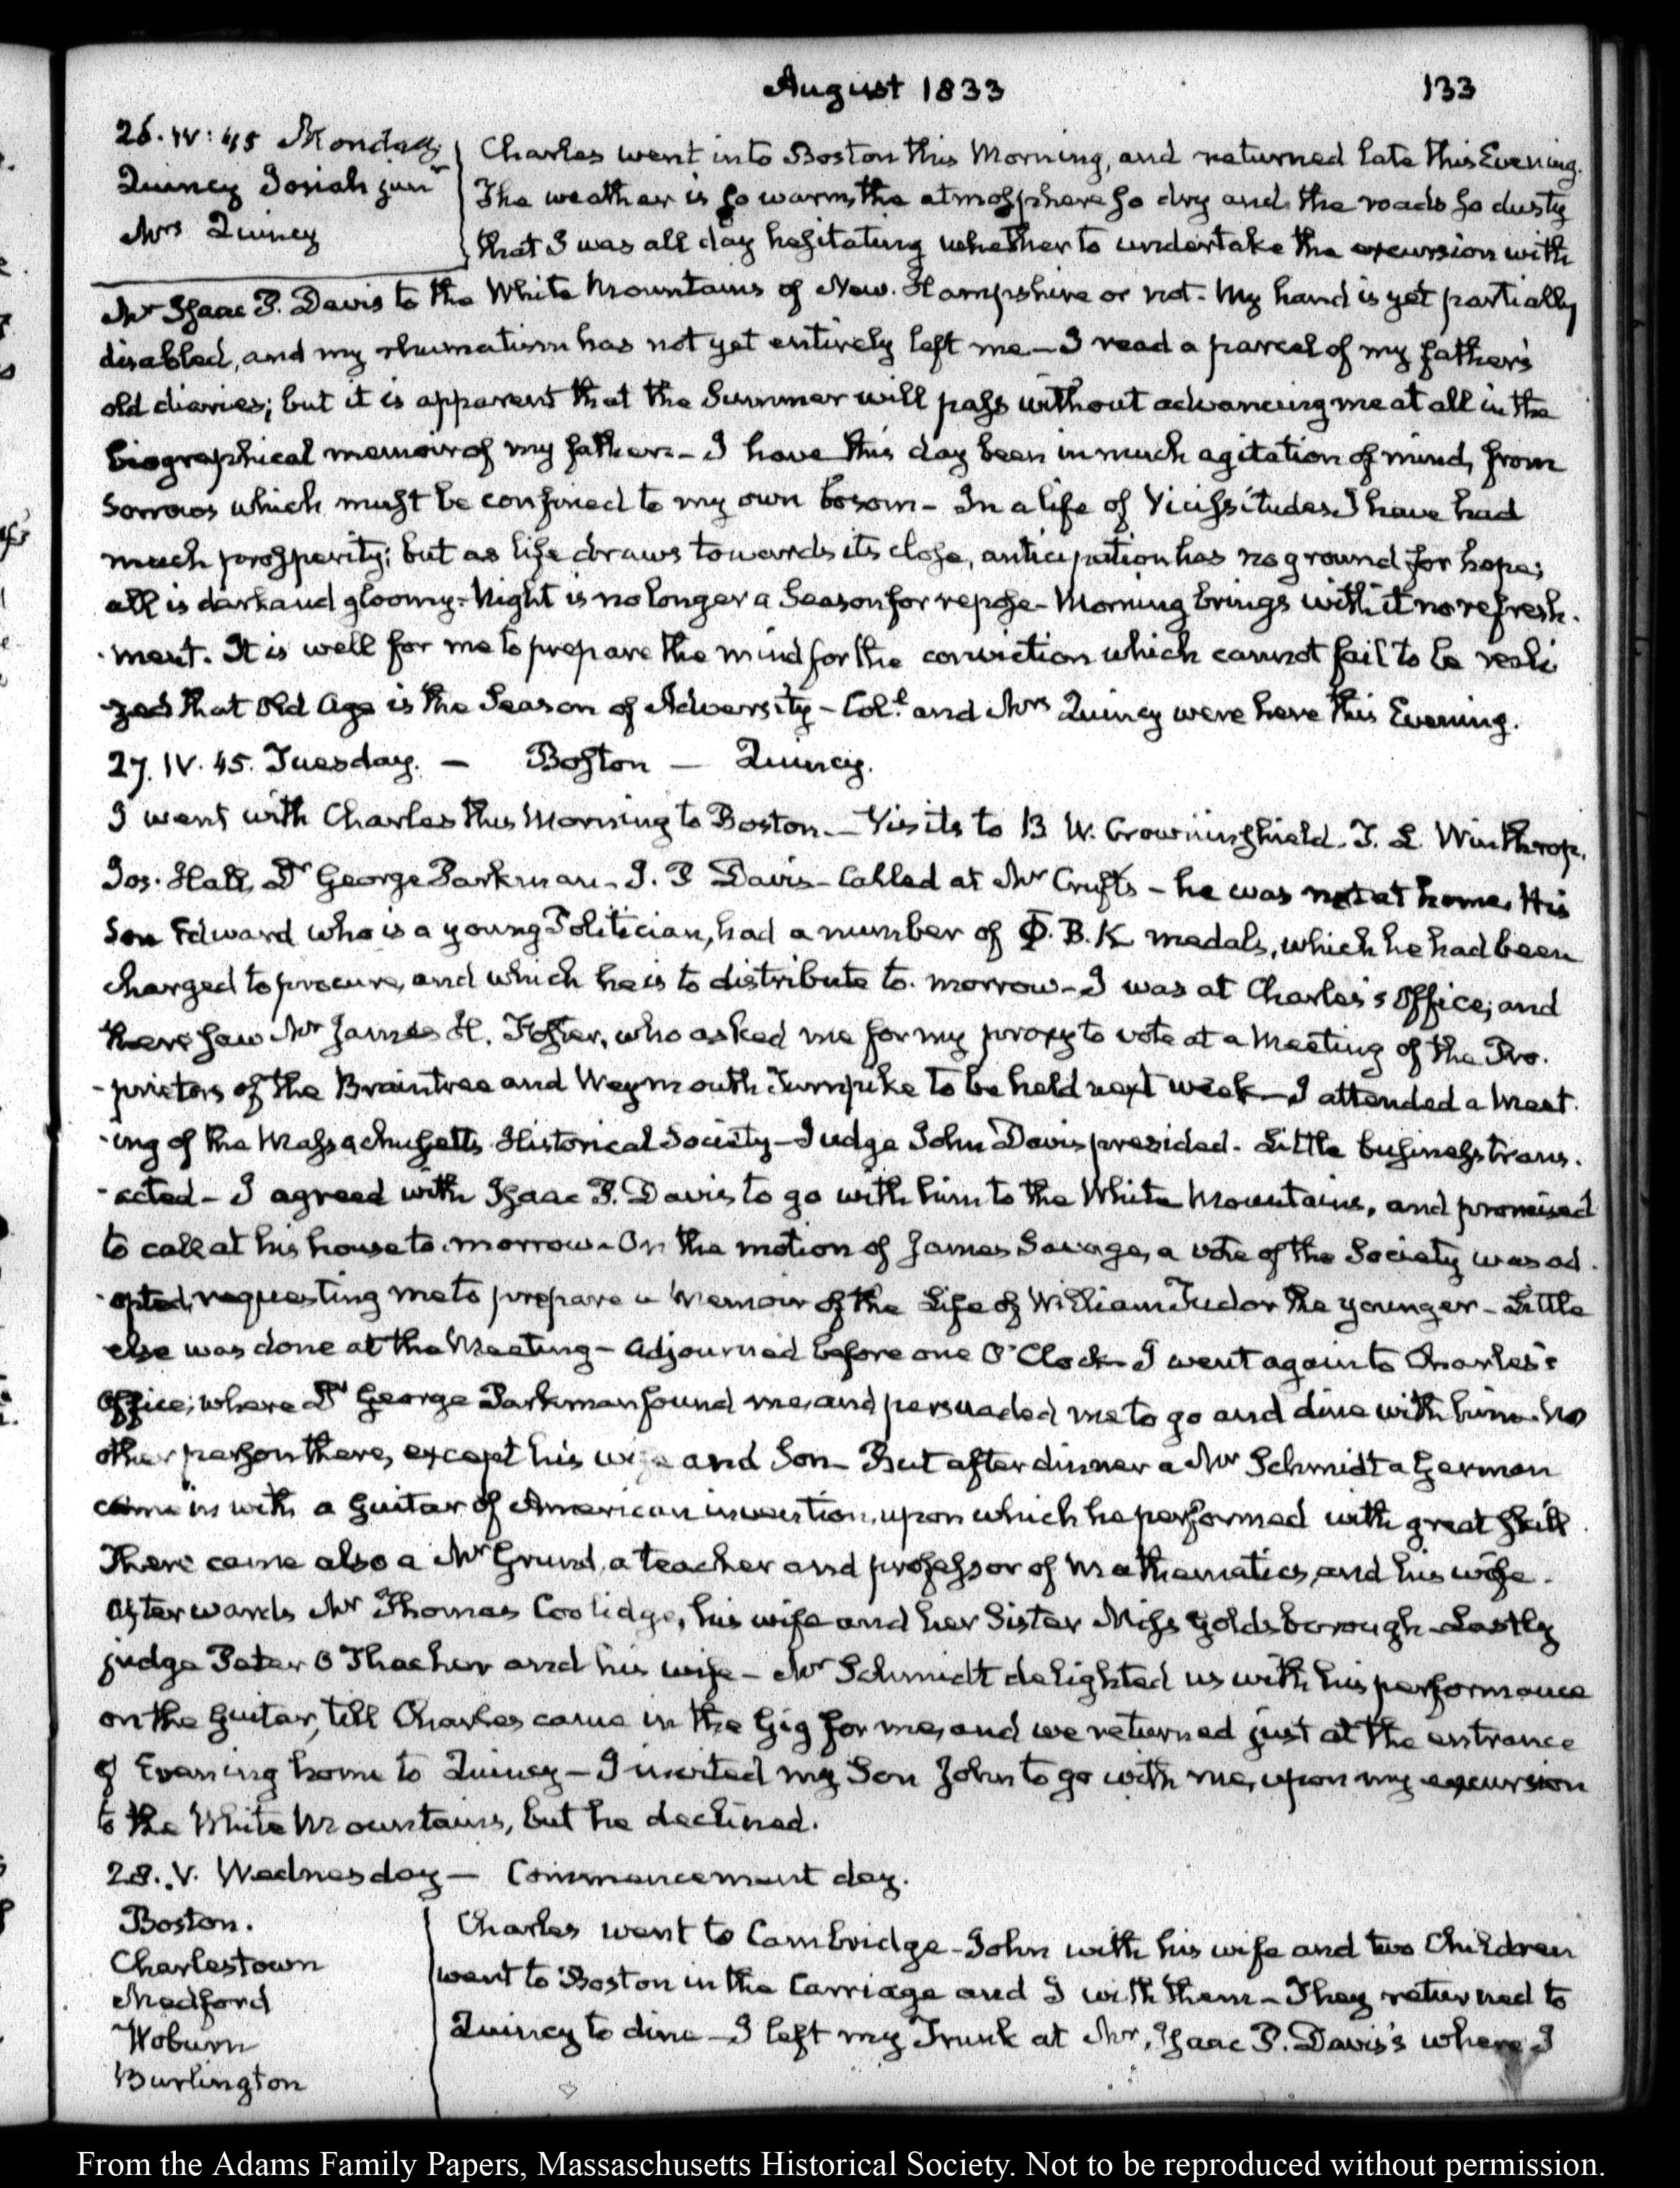 August 1833
133
26. IV: 45 Monday.
Quincy Josiah junr
Mrs Quincy
Charles went into Boston this Morning, and returned late this Evening.
The weather is so warm, the atmosphere so dry and the roads so dusty
that I was all day hesitating whether to undertake the excursion with
Mr Isaac P. Davis to the White Mountains of New-Hampshire or not. My hand is yet partially
disabled, and my rhumatism has not yet entirely left me — I read a parcel of my father's
old diaries; but it is apparent that the Summer will pass without advancing me at all in the
biographical memoir of my father. - I have this day been in much agitation of mind, from
sorrows which must be confined to my own bosom - In a life of Vicissitudes I have had
much prosperity; but as life draws towards its close, anticipation has no ground for hope;
all is dark and gloomy - Night is no longer a Season for repose - Morning brings with it no refresh-
-ment. It is well for me to prepare the mind for the conviction which cannot fail to be reali
zed that Old Age is the Season of Adversity - Col.l and Mrs Quincy were here this Evening.
27. IV. 45. Tuesday. — Boston — Quincy.
I went with Charles this Morning to Boston. — Visits to B W. Crowninshield. T. L. Winthrop,
Jos. Hall, Dr George Parkman - I. P Davis - Called at Mr Crufts - he was not at home. His
Son Edward who is a young Politician, had a number of Φ. B. K medals, which he had been
charged to procure, and which he is to distribute to-morrow - I was at Charles's Office; and
there saw Mr James H. Foster, who asked me for my proxy to vote at a Meeting of the Pro-
-prietors of the Braintree and Weymouth Turnpike to be held next week — I attended a Meet-
-ing of the Massachusetts Historical Society — Judge John Davis presided. Little business trans-
-acted - I agreed with Isaac P. Davis to go with him to the White Mountains, and promised
to call at his house to-morrow - On the motion of James Savage, a vote of the Society was ad-
-opted, requesting me to prepare a Memoir of the Life of William Tudor the younger - Little
else was done at the Meeting - Adjourned before one O'Clock - I went again to Charles's
Office; where Dr George Parkman found me, and persuaded me to go and dine with him. No
other person there, except his wife and Son - But after dinner a Mr Schmidt a German
came in with a Guitar of American invention, upon which he performed with great skill.
There came also a Mr Grund, a teacher and professor of Mathematics, and his wife.
Afterwards Mr Thomas Coolidge, his wife and her Sister Miss Goldsborough - Lastly
judge Peter O Thacher and his wife - Mr Schmidt delighted us with his performance
on the Guitar, till Charles came in the Gig for me, and we returned just at the entrance
of Evening home to Quincy — I invited my Son John to go with me, upon my excursion
to the White Mountains, but he declined.
28. V. Wednesday — Commencement day.
Boston.
Charlestown
Medford
Woburn
Burlington
Charles went to Cambridge - John with his wife and two Children
went to Boston in the Carriage and I with them - They returned to
Quincy to dine - I left my Trunk at Mr. Isaac P. Davis's where I
From the Adams Family Papers, Massachusetts Historical Society. Not to be reproduced without permission.